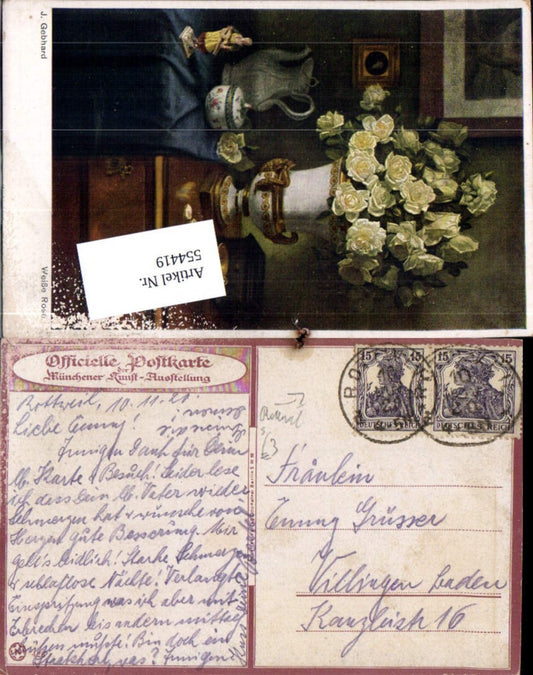 J. Gebhard
Weiße Rosen
Artikel Nr.
554419
Officielle Postkarte
der
Münchener Kunst-Ausstellung
Rottweil, 10.11.20
Liebe Emmy!
Innigen Dank für Deine
lb. Karte & Besuch! Leider lese
ich dass Dein lb. Vater wieder
Schmerzen hat & wünsche von
Herzen gute Besserung. Mir
geht's leidlich! Starke Schmerzen
& schlaflose Nächte! Verlangte
Einspritzung was ich aber mit
Erbrechen bis andern mittag
büßen mußte! Bin doch ein
was? Innigen
15 15
DEUTSCHES REICH
15 15
DEUTSCHES REICH
Fräulein
Emmy Grüsser
Villingen Baden
Kanzleist 16